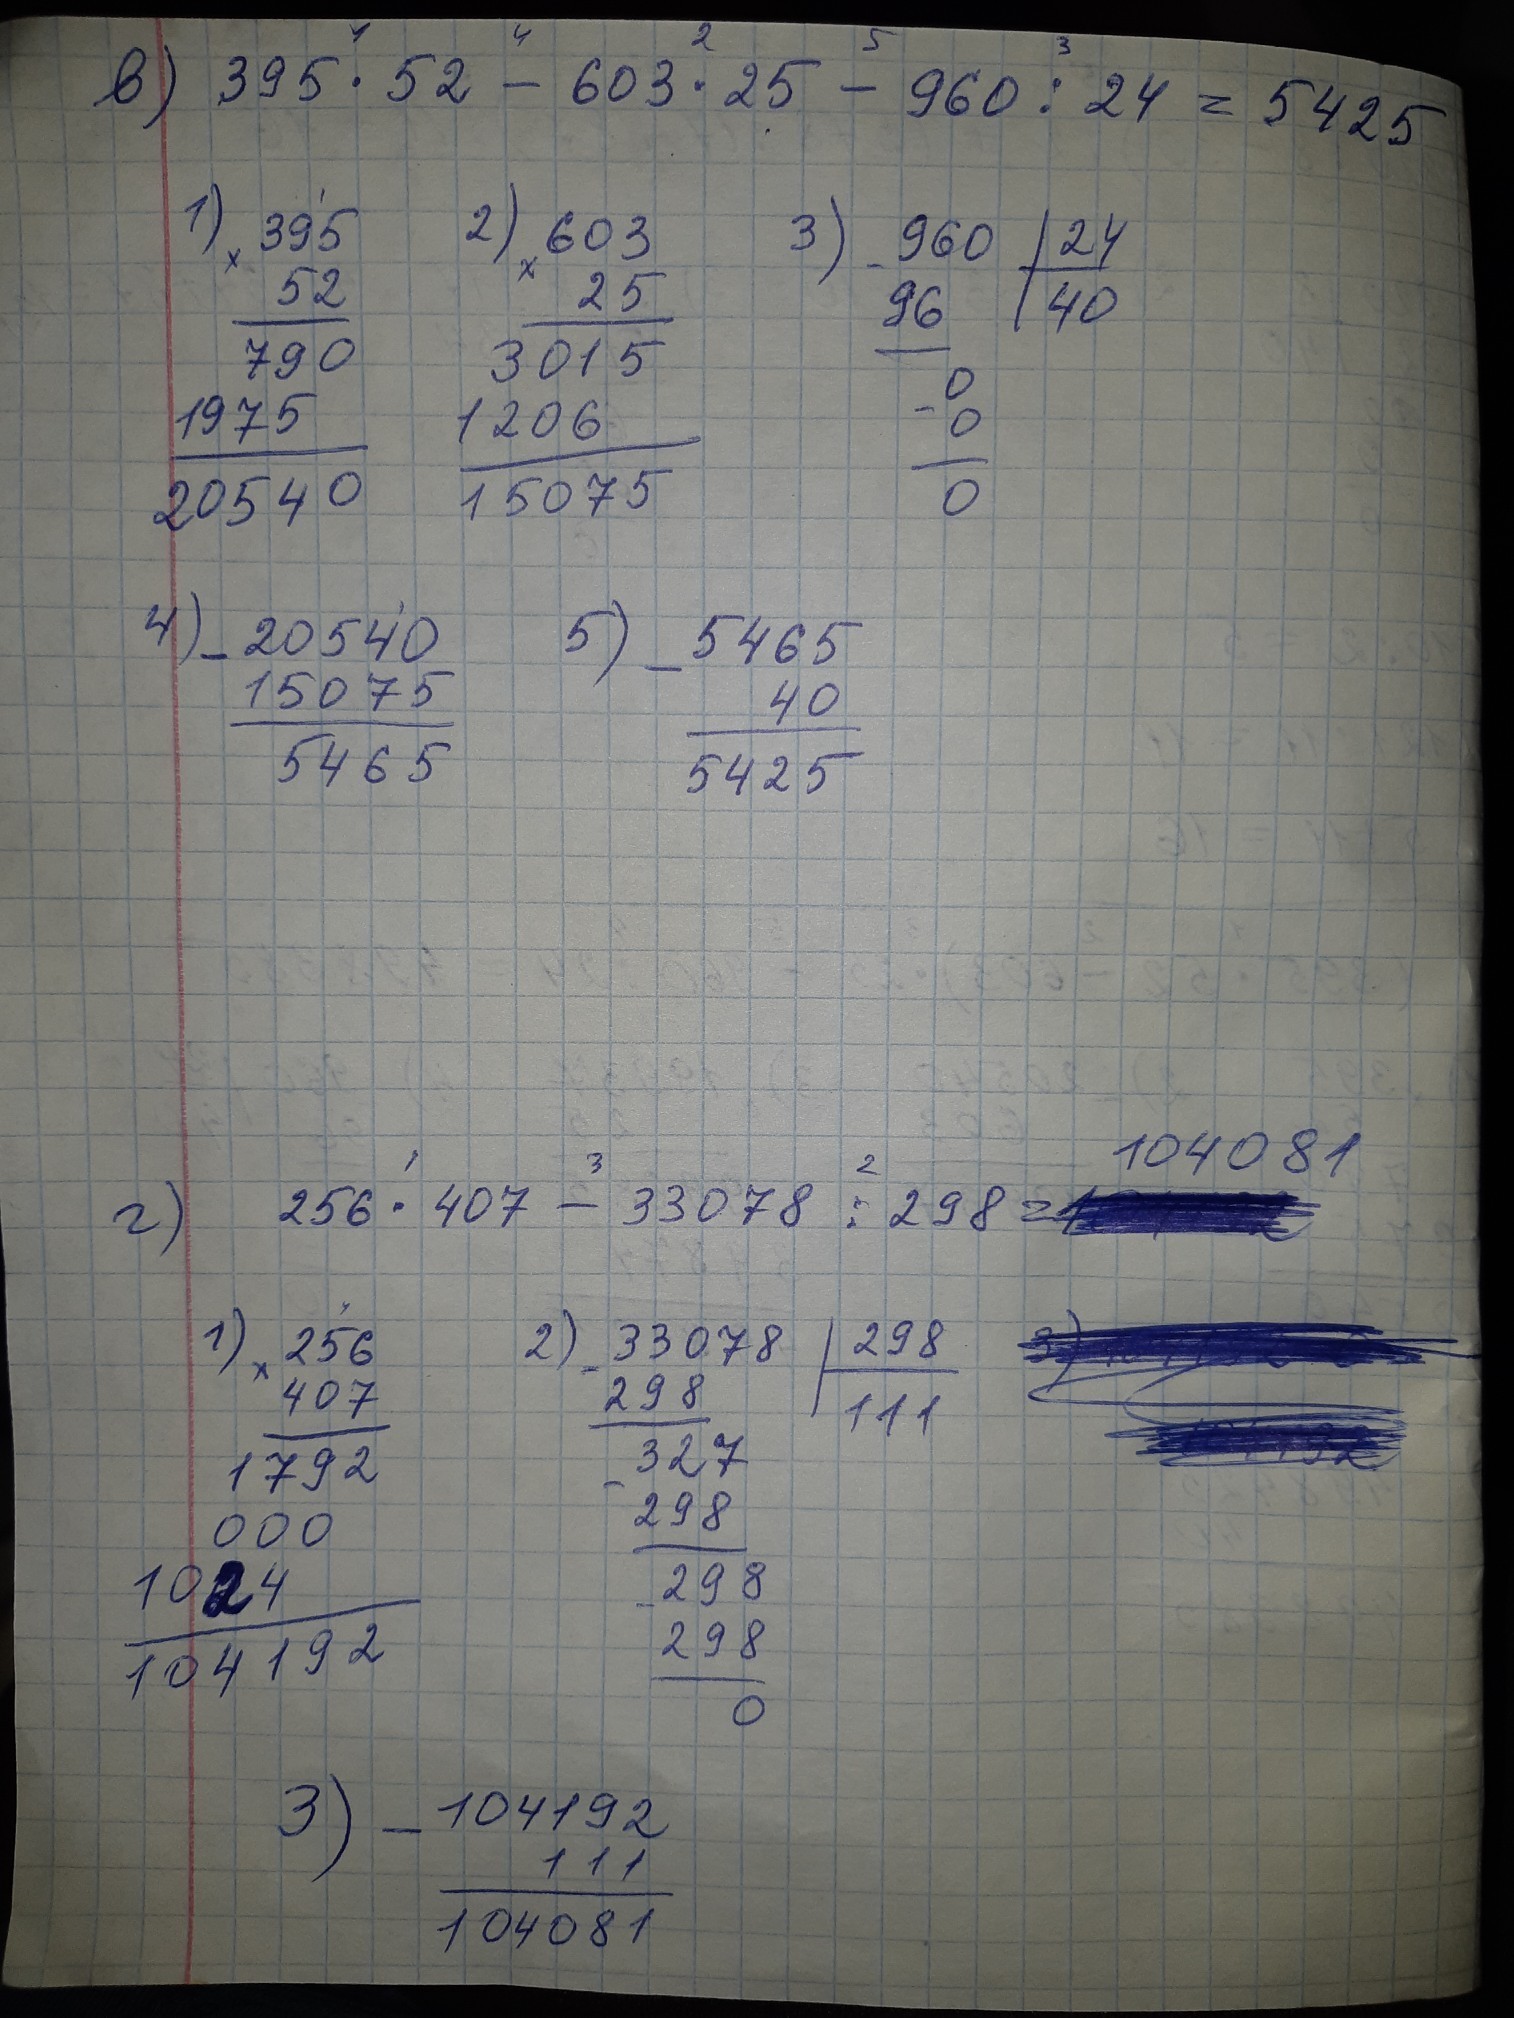 в) 395 · 52 − 603 · 25 − 960 : 24 = 5425
1 4 2 5 3
1) × 395 2) × 603 3) − 960 | 24
52 25 96 40
790 3015 0
1975 1206 − 0
20540 15075 0
4) − 20540 5) − 5465
15075 40
5465 5425
104081
1 3 2
г) 256 · 407 − 33078 : 298 =
1) × 256 2) − 33078 | 298
407 298 111
1792 − 327
000 298
1024 − 298
104192 298
0
3) − 104192
111
104081